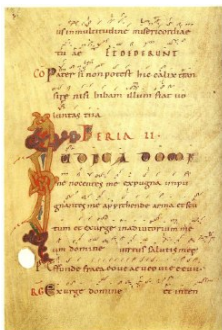 us in multitudine misericordiae
tu ae ET DIDERUNT
CO Pater si non potest hic calix tran
sire nisi bibam illum fiat uo
luntas tua
FERIA II
IUDICA DOMI
ne nocentes me expugna impu
gnantes me apprehende arma et scu
tum et exurge in adiutorium me
um domine uirtus salutis mee
RG Exurge domine et inten